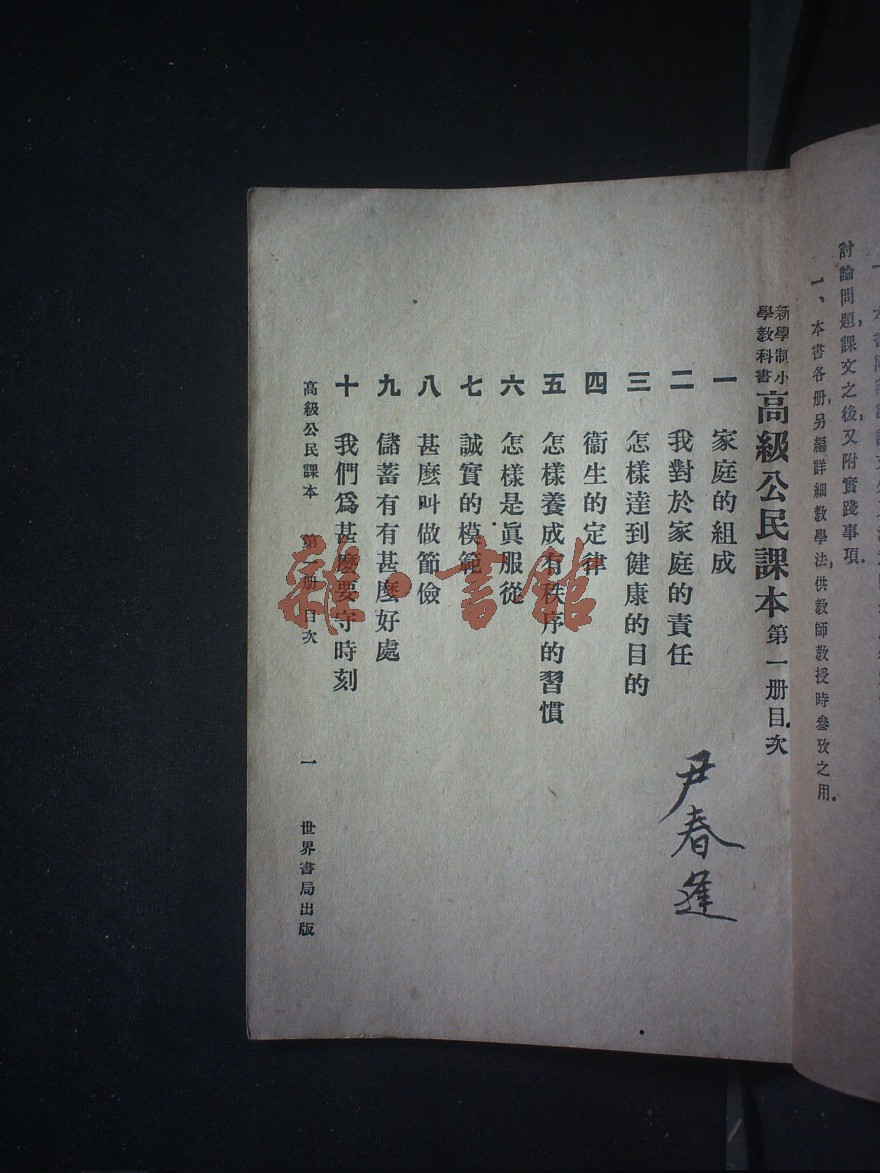 討論問題,課文之後,又附實踐事項.
一、本書各册,另編詳細教學法,供教師教授時參攷之用.
新學制小
學教科書
高級公民課本 第一册目次
一 家庭的組成
二 我對於家庭的責任
三 怎樣達到健康的目的
四 衞生的定律
五 怎樣養成有秩序的習慣
六 怎樣是眞服從
七 誠實的模範
八 甚麼叫做節儉
九 儲蓄有有甚麼好處
十 我們爲甚麼要守時刻
高級公民課本 第一册 目次 一 世界書局出版
尹春
雜·書館